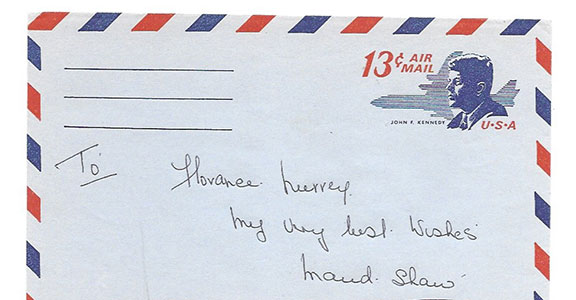 13¢ AIR
MAIL
JOHN F. KENNEDY
U•S•A
To
Florance Murrey
My very best Wishes
Maud Shaw